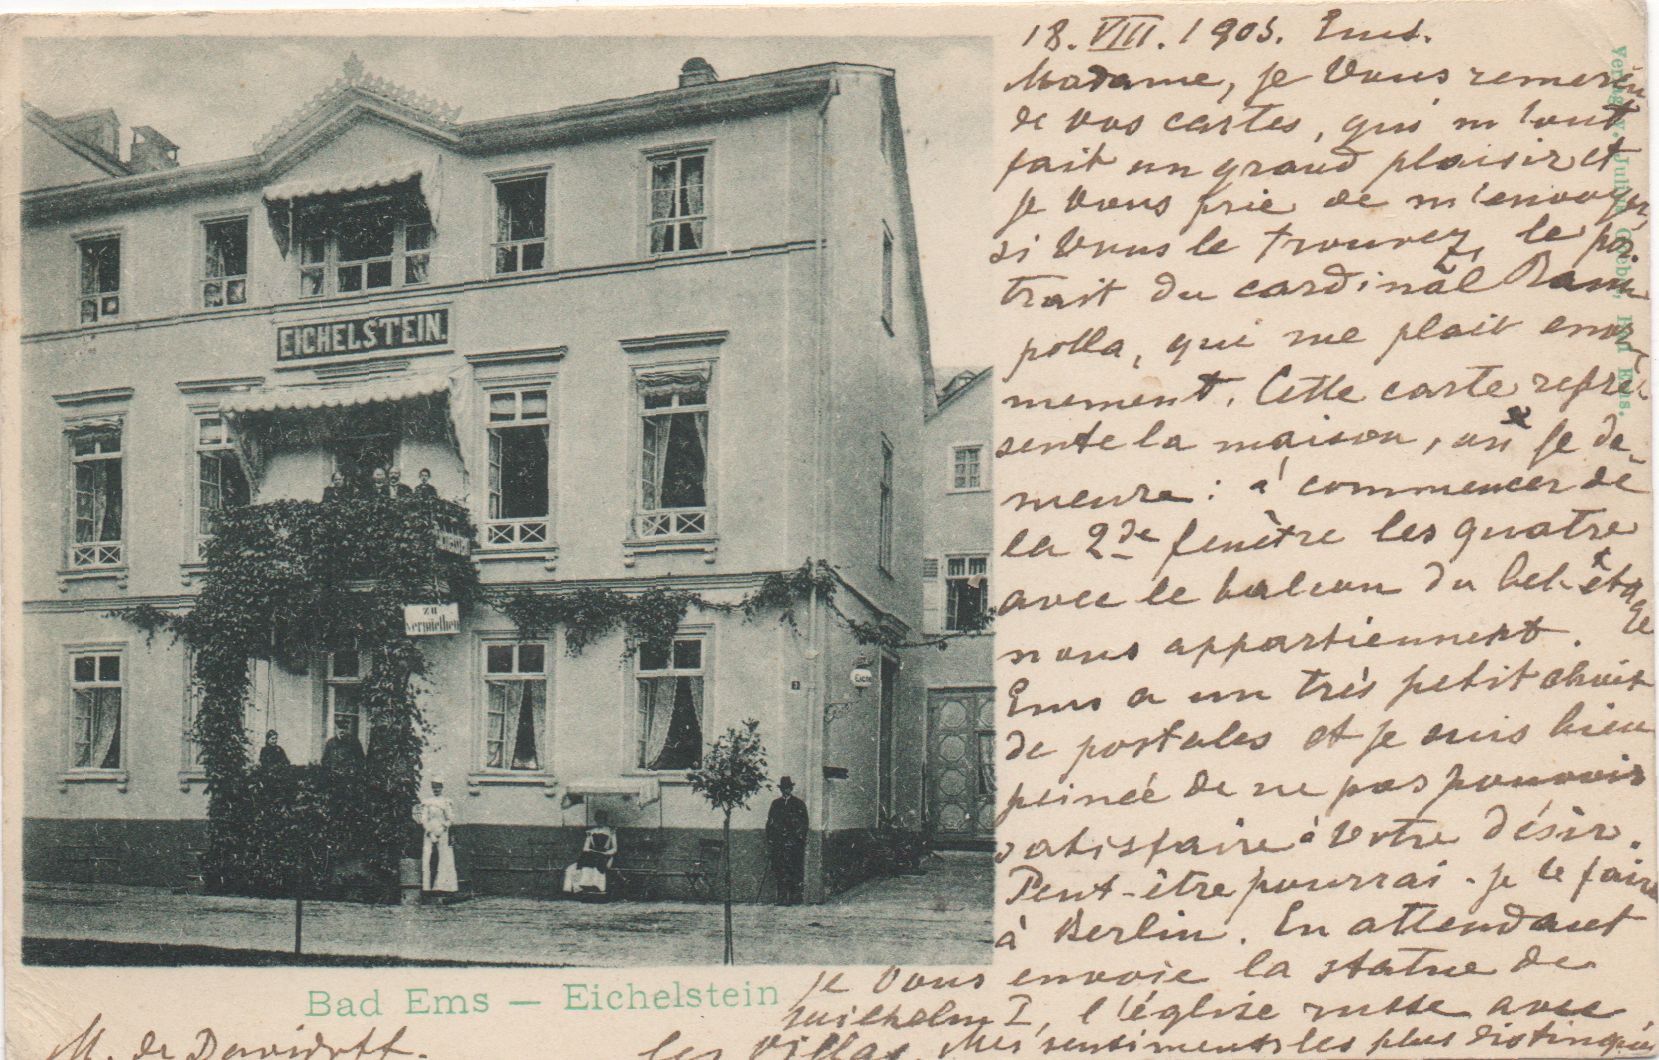 18. VIII. 1903. Ems.
Madame, je Vous remercie
de vos cartes, qui m'ont
fait un grand plaisir et
je Vous prie de m'envoyer,
si Vous le trouvez, le por-
trait du cardinal Ram-
polla, qui me plait enor-
mement. Cette carte repré-
sente la maison, où je de-
meure: à commencer de
la 2de fenêtre les quatre
avec le balcon du bel-étage
nous appartiennent.
Ems a un très petit choix
de postales et je suis bien
peinée de ne pas pouvoir
satisfaire à Votre désir.
Peut-être pourrai-je le faire
à Berlin. En attendant
je Vous envoie la statue de
Guilhelm I, l'église russe avec
les Villas. Mes sentiments les plus distingués
M. de Davidoff.
EICHELSTEIN.
EICHELSTEIN
zu
vermiethen
Bad Ems — Eichelstein
Verlag v. Bad Ems.